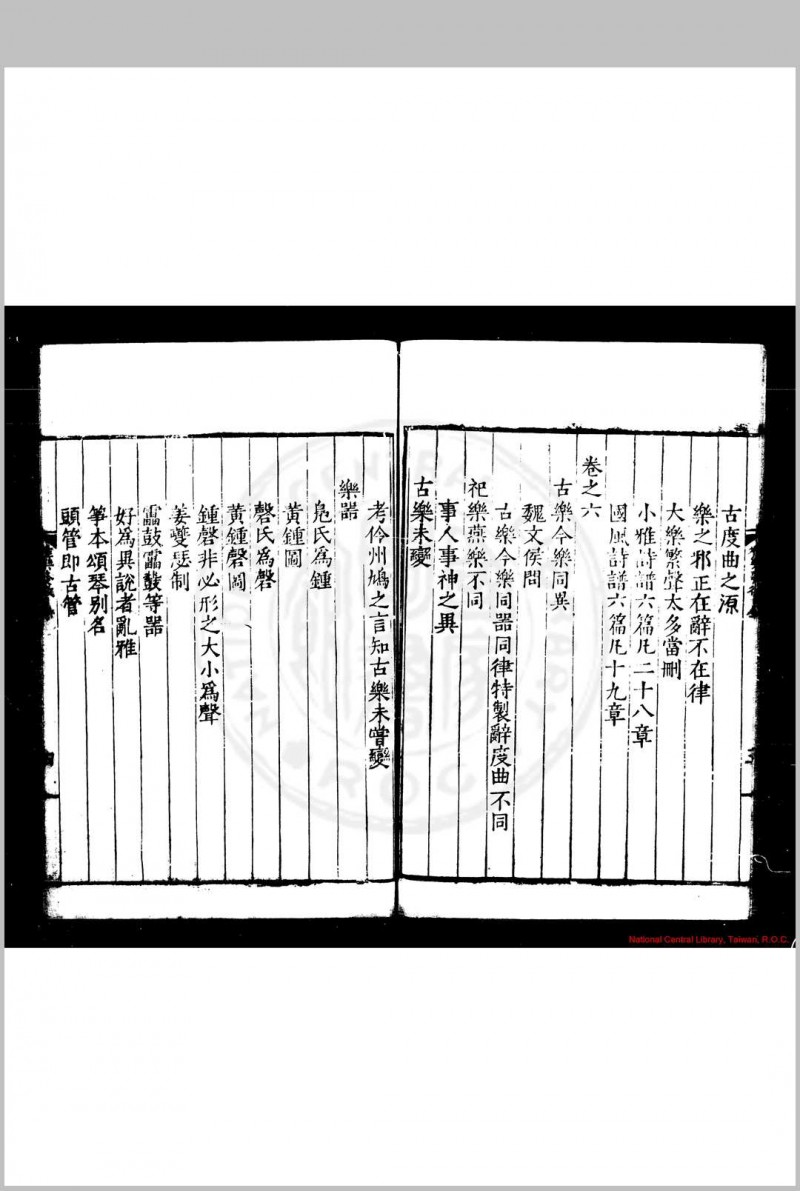 古度曲之源
樂之邪正在辭不在律
大樂繁聲太多當刪
小雅詩譜六篇凡二十八章
國風詩譜六篇凡十九章
卷之六
古樂今樂同異
魏文侯問
古樂今樂同器同律特製辭度曲不同
祀樂燕樂不同
事人事神之異
古樂未變
考伶州鳩之言知古樂未嘗變
樂器
鳧氏為鍾
黃鍾圖
磬氏為磬
黃鍾磬圖
鍾磬非必形之大小為聲
姜夔瑟制
靁鼓靁鼗等器
好為異說者亂雅
筝本頌琴別名
頭管即古管
National Central Library, Taiwan, R.O.C.